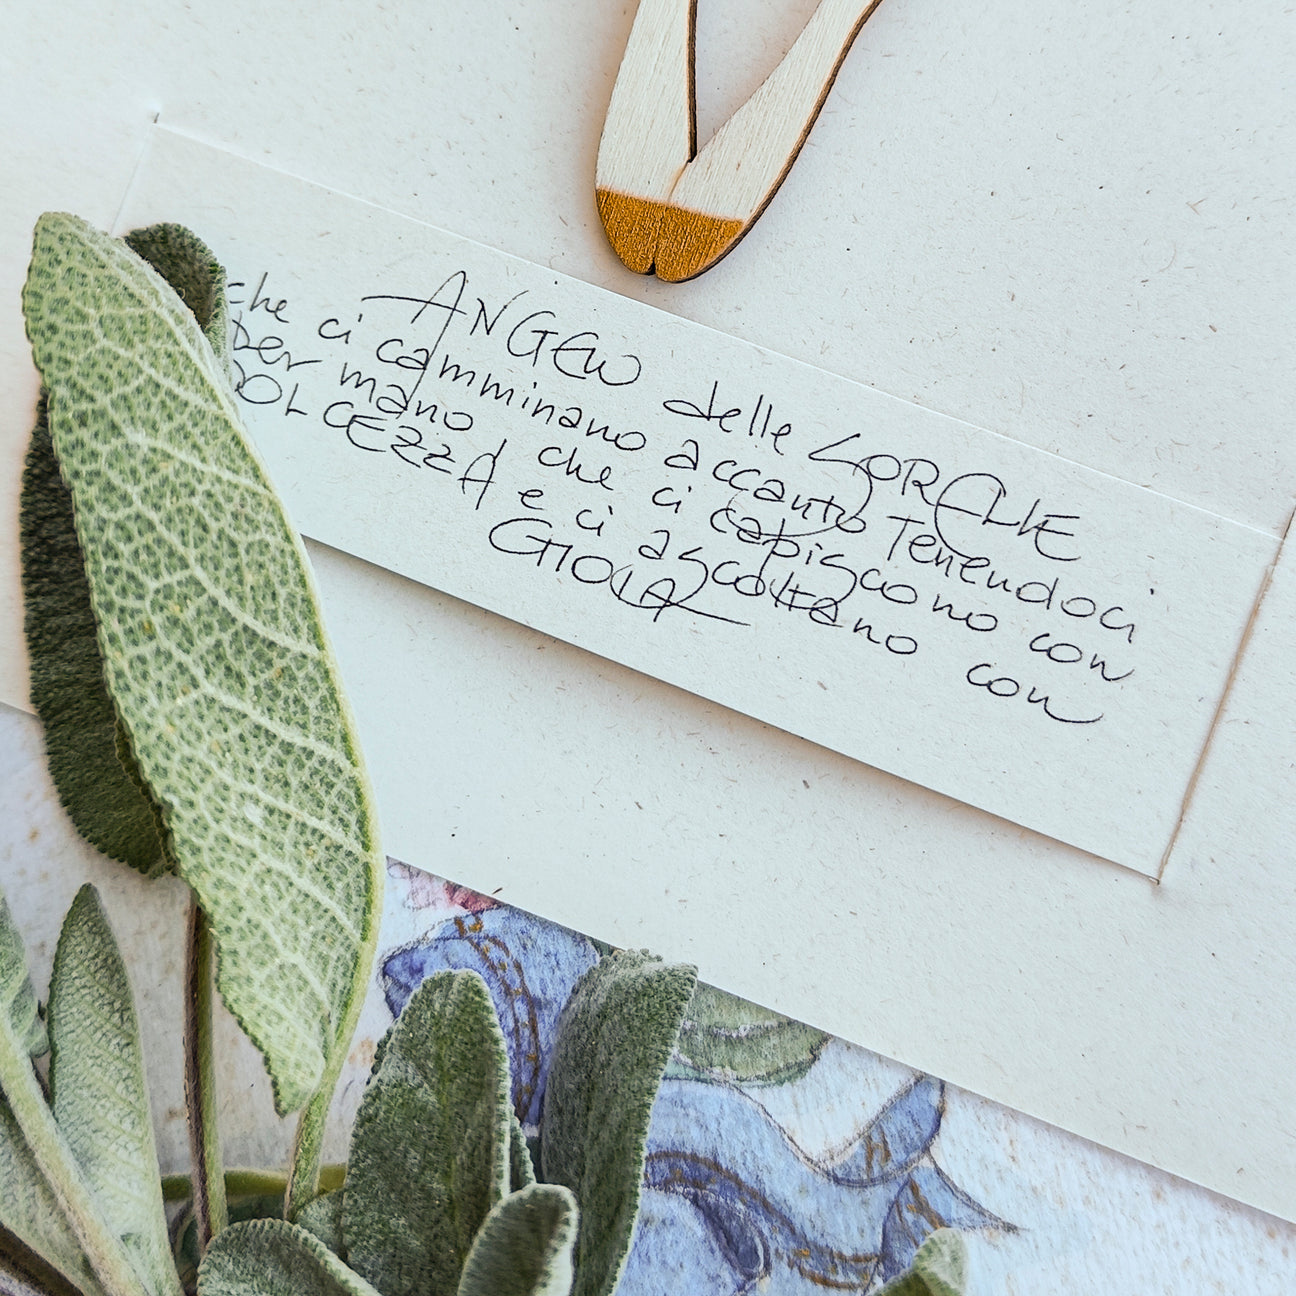 ANGELO delle SORELLE
che ci camminano accanto Tenendoci
per mano che ci capiscono con
DOLCEZZA e ci ascoltano con
GIOIA